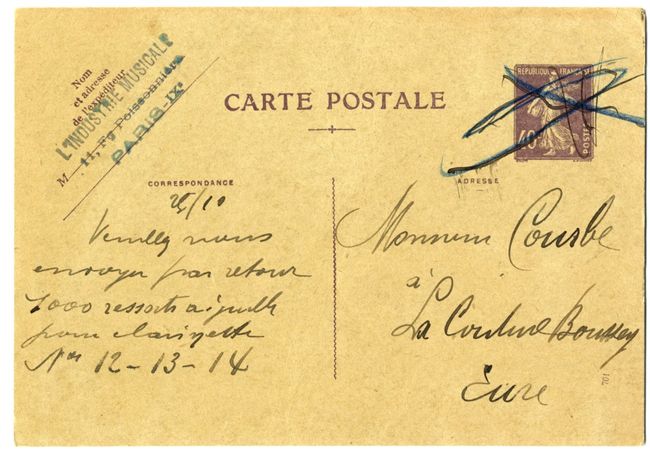 Nom
et adresse
de l'expéditeur
L'INDUSTRIE MUSICALE
M 11, Fg Poissonnière
PARIS-IXe
CARTE POSTALE
RÉPUBLIQUE FRANÇAISE
40c
POSTES
CORRESPONDANCE
ADRESSE
25/10
Veuillez nous
envoyer par retour
1000 ressorts aiguille
pour clarinette
Nos 12-13-14
Monsieur Courbe
à
La Couture Boussey
Eure
701